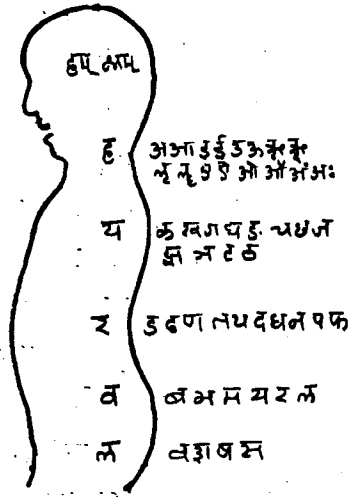 हम् क्षम्
ह अआइईउऊऋॠ
ऌॡएऐओऔअंअः
य कखगघङचछज
झञटठ
र डढणतथदधनपफ
व बभमयरल
ल वशषस